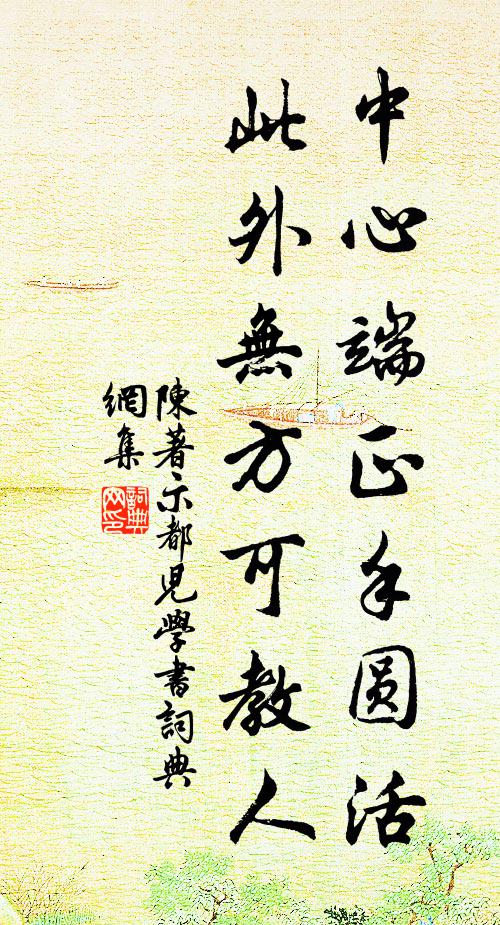 中心端正手圆活
此外無方可教人
陳著示都兒學書詞典
網集
詞典
网印